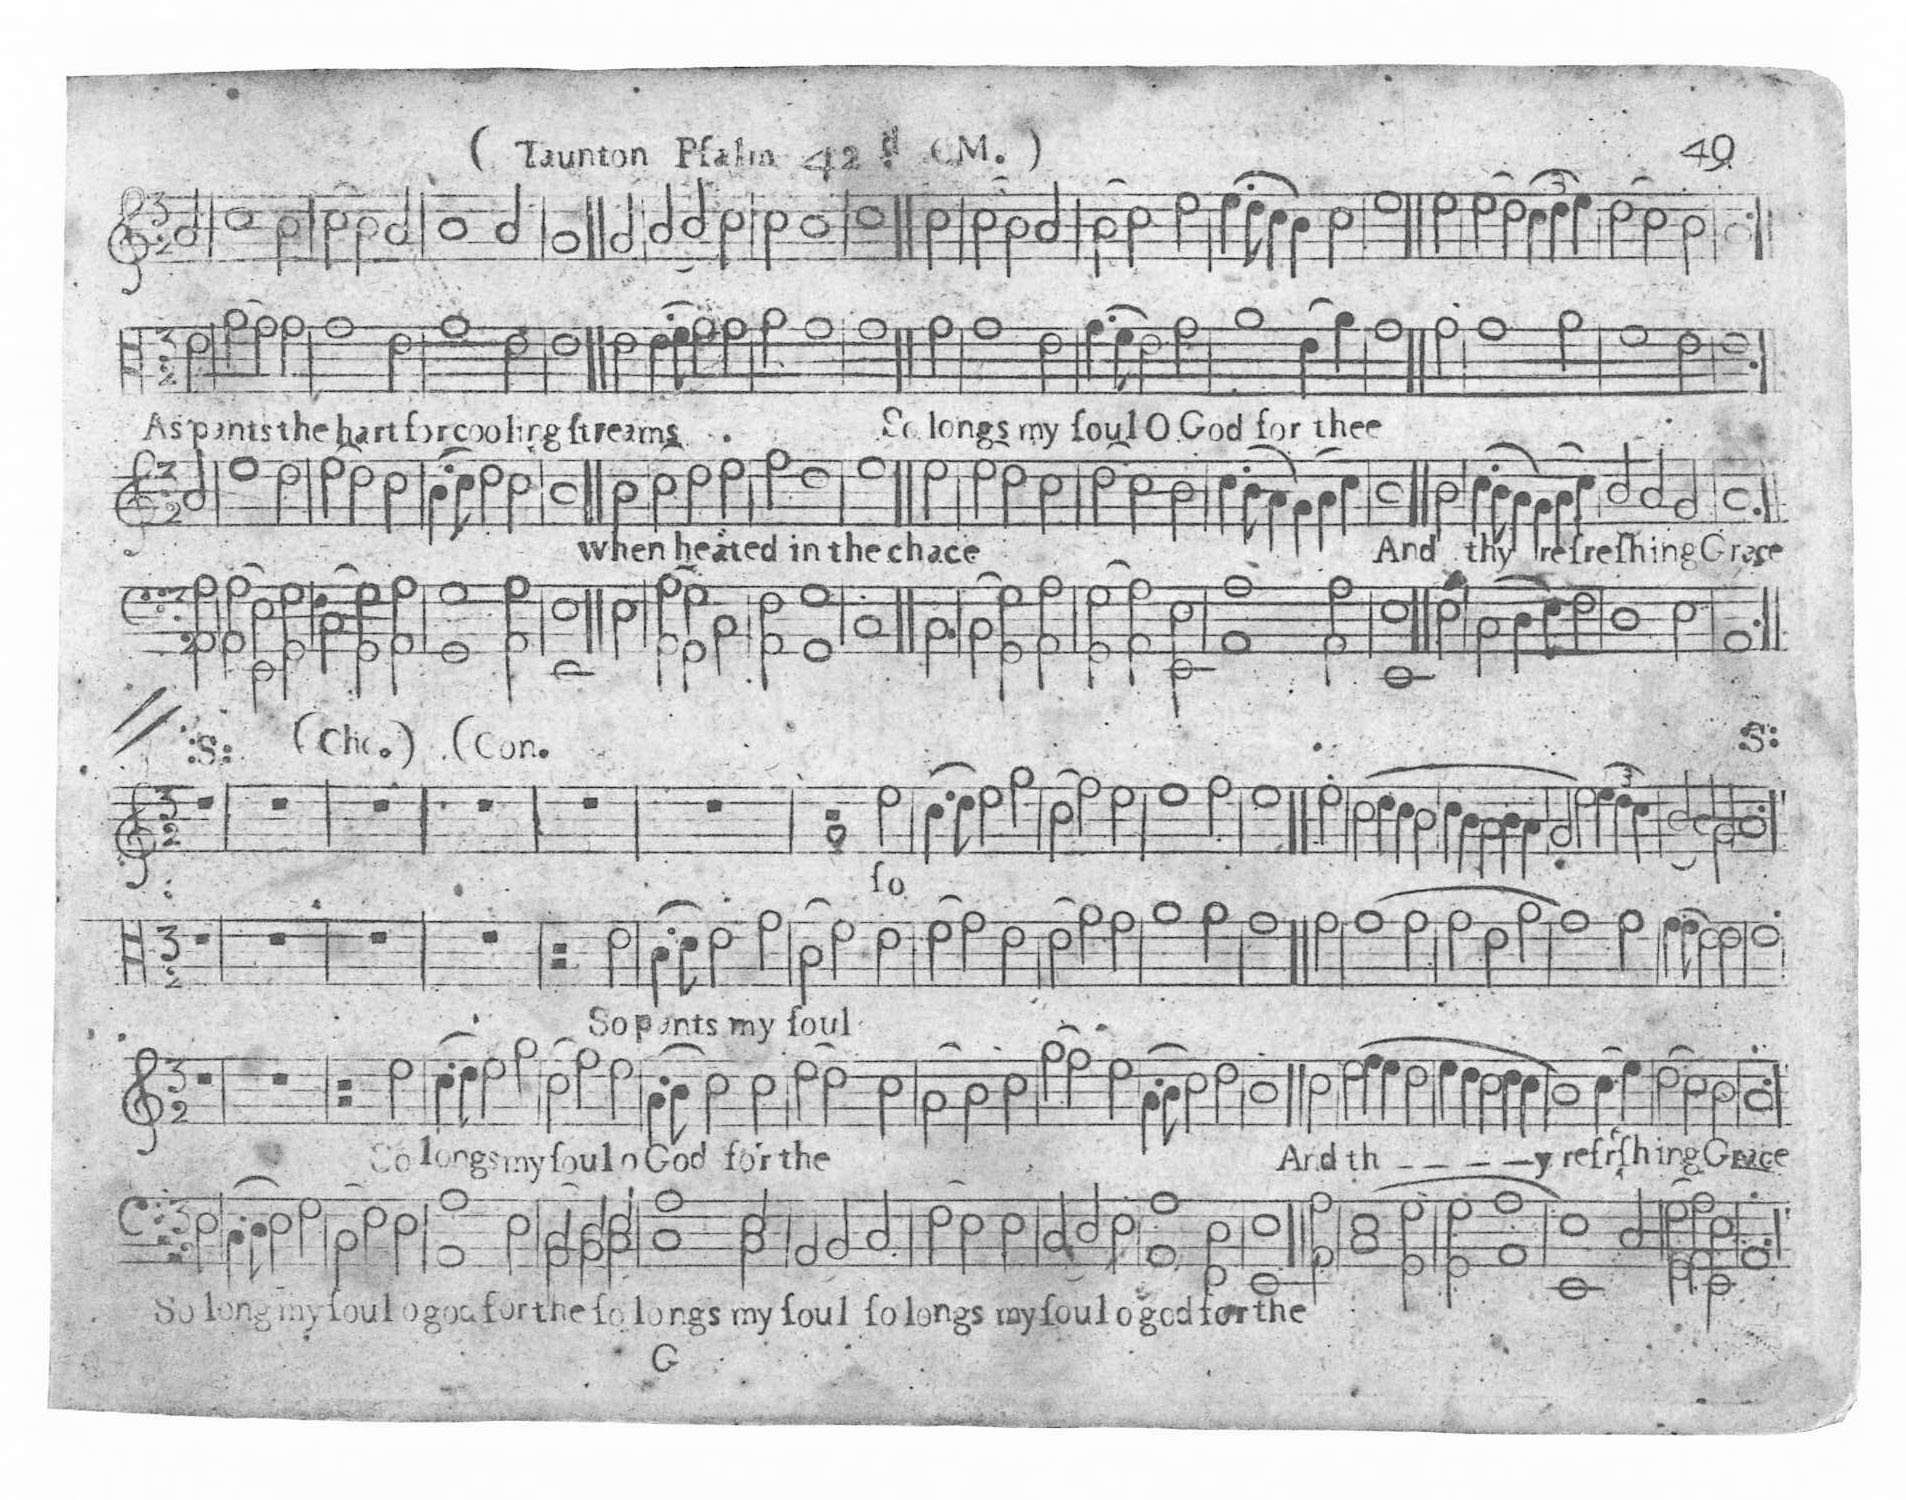 ( Taunton Pſalm 42.d CM. ) 49
As pants the hart for cooling ſtreams So longs my ſoul O God for thee
when heated in the chace And thy refreſhing Grace
:S: (Cho.) (Con. :S:
3
ſo
So pants my ſoul
So longs my ſoul o God for the And th ———— y refrſhing Grace
So long my ſoul o god for the ſo longs my ſoul ſo longs my ſoul o god for the
G